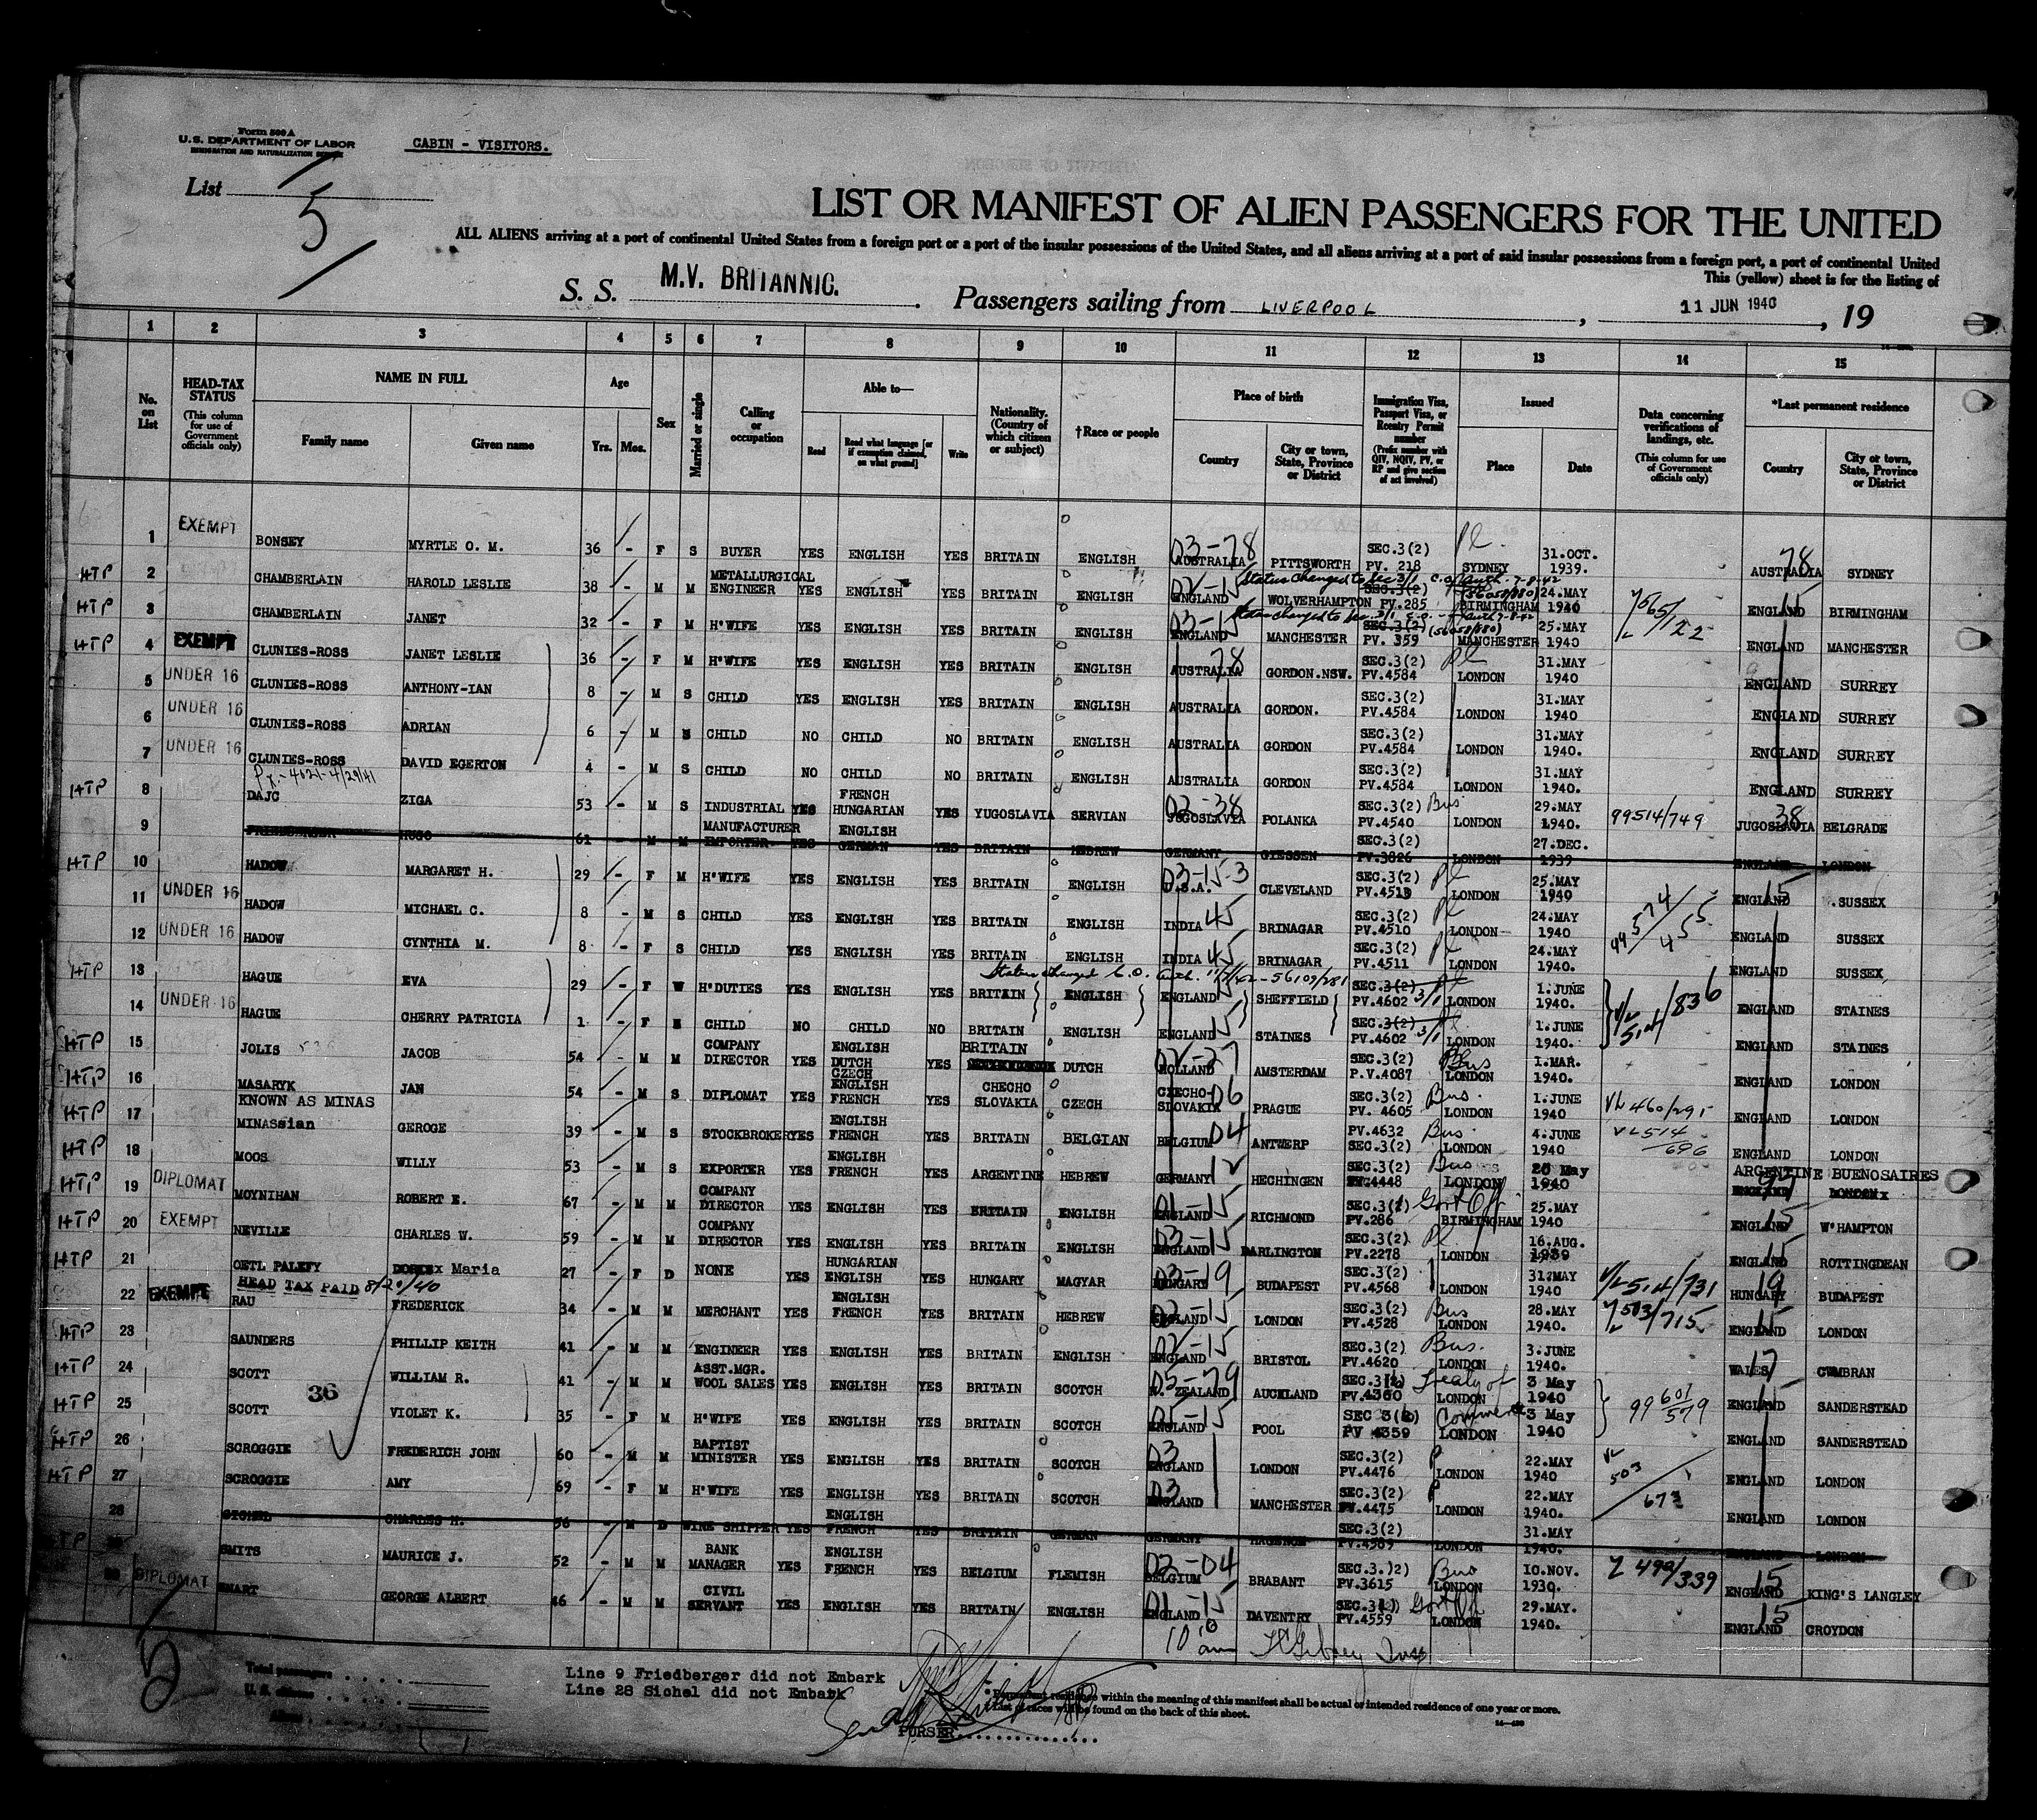 Form 500 A
U.S. DEPARTMENT OF LABOR
IMMIGRATION AND NATURALIZATION SERVICE
CABIN - VISITORS.
List 5
LIST OR MANIFEST OF ALIEN PASSENGERS FOR THE UNITED
ALL ALIENS arriving at a port of continental United States from a foreign port or a port of the insular possessions of the United States, and all aliens arriving at a port of said insular possessions from a foreign port, a port of continental United
This (yellow) sheet is for the listing of
S. S. M.V. BRITANNIC. Passengers sailing from LIVERPOOL, 11 JUN 1940, 19
1 2 3 4 5 6 7 8 9 10 11 12 13 14 15
No. on List
HEAD-TAX STATUS (This column for use of Government officials only)
NAME IN FULL
Family name Given name
Age
Yrs. Mos.
Sex
Married or single
Calling or occupation
Able to—
Read Read what language [or if exemption claimed, on what ground] Write
Nationality. (Country of which citizen or subject)
†Race or people
Place of birth
Country City or town, State, Province or District
Immigration Visa, Passport Visa, or Reentry Permit number (Prefix number with QIV, NQIV, PV, or RP and give section of act involved)
Issued
Place Date
Data concerning verifications of landings, etc. (This column for use of Government officials only)
*Last permanent residence
Country City or town, State, Province or District
1 EXEMPT BONSEY MYRTLE O. M. 36 - F S BUYER YES ENGLISH YES BRITAIN ENGLISH 03-78 AUSTRALIA PITTSWORTH SEC.3(2) PV. 218 SYDNEY 31.OCT. 1939. 78 AUSTRALIA SYDNEY
HTP 2 CHAMBERLAIN HAROLD LESLIE 38 - M M METALLURGICAL ENGINEER YES ENGLISH YES BRITAIN ENGLISH ENGLAND WOLVERHAMPTON SEC.3(2) PV.285 BIRMINGHAM 24.MAY 1940 ENGLAND BIRMINGHAM
HTP 3 CHAMBERLAIN JANET 32 - F M H'WIFE YES ENGLISH YES BRITAIN ENGLISH 03-15 ENGLAND MANCHESTER SEC.3(2) PV. 359 (56058/880) MANCHESTER 25.MAY 1940 ENGLAND MANCHESTER
HTP 4 EXEMPT CLUNIES-ROSS JANET LESLIE 36 - F M H'WIFE YES ENGLISH YES BRITAIN ENGLISH 78 AUSTRALIA GORDON.NSW. SEC.3(2) PV.4584 LONDON 31.MAY 1940 ENGLAND SURREY
5 UNDER 16 CLUNIES-ROSS ANTHONY-IAN 8 - M S CHILD YES ENGLISH YES BRITAIN ENGLISH AUSTRALIA GORDON. SEC.3(2) PV.4584 LONDON 31.MAY 1940 ENGLAND SURREY
6 UNDER 16 CLUNIES-ROSS ADRIAN 6 - M S CHILD NO CHILD NO BRITAIN ENGLISH AUSTRALIA GORDON SEC.3(2) PV.4584 LONDON 31.MAY 1940. ENGLAND SURREY
7 UNDER 16 CLUNIES-ROSS DAVID EGERTON 4 - M S CHILD NO CHILD NO BRITAIN ENGLISH AUSTRALIA GORDON SEC.3(2) PV.4584 LONDON 31.MAY 1940. ENGLAND SURREY
HTP 8 DAJC ZIGA 53 - M S INDUSTRIAL MANUFACTURER YES FRENCH HUNGARIAN ENGLISH YES YUGOSLAVIA SERVIAN 02-38 JUGOSLAVIA POLANKA SEC.3(2) PV.4540 Bus LONDON 29.MAY 1940. 99514/749 38 JUGOSLAVIA BELGRADE
9 HUGO 61 M M IMPORTER YES GERMAN YES BRITAIN HEBREW GERMANY GIESSEN SEC.3(2) PV.3826 LONDON 27.DEC. 1939 ENGLAND LONDON
HTP 10 HADOW MARGARET H. 29 - F M H'WIFE YES ENGLISH YES BRITAIN ENGLISH 03-15-3 U.S.A. CLEVELAND SEC.3(2) LONDON 25.MAY 1940 15 ENGLAND SUSSEX
11 UNDER 16 HADOW MICHAEL C. 8 - M S CHILD YES ENGLISH YES BRITAIN ENGLISH INDIA 45 BRINAGAR SEC.3(2) PV.4510 LONDON 24.MAY 1940 ENGLAND SUSSEX
12 UNDER 16 HADOW CYNTHIA M. 8 - F S CHILD YES ENGLISH YES BRITAIN ENGLISH INDIA 45 BRINAGAR SEC.3(2) PV.4511 LONDON 24.MAY 1940. ENGLAND SUSSEX
HTP 13 HAGUE EVA 29 - F W H'DUTIES YES ENGLISH YES BRITAIN ENGLISH ENGLAND SHEFFIELD SEC.3(2) PV.4602 3/1 LONDON 1.JUNE 1940. ENGLAND STAINES
14 UNDER 16 HAGUE CHERRY PATRICIA 1 - F CHILD NO CHILD NO BRITAIN ENGLISH ENGLAND 15 STAINES SEC.3(2) PV.4602 3/1 LONDON 1.JUNE 1940. ENGLAND STAINES
HTP 15 JOLIS JACOB 54 - M M COMPANY DIRECTOR YES ENGLISH DUTCH YES BRITAIN DUTCH HOLLAND AMSTERDAM SEC.3(2) P.V.4087 Bus LONDON 1.MAR. 1940. ENGLAND LONDON
HTP 16 MASARYK JAN 54 - M S DIPLOMAT YES CZECH ENGLISH FRENCH YES CHECHO SLOVAKIA CZECH CZECHO-SLOVAKIA 06 PRAGUE SEC.3(2) PV. 4605 Bus. LONDON 1.JUNE 1940 ENGLAND LONDON
HTP 17 KNOWN AS MINAS MINASsian GEROGE 39 - M S STOCKBROKER YES ENGLISH FRENCH YES BRITAIN BELGIAN BELGIUM 04 ANTWERP PV.4632 SEC.3(2) Bus. LONDON 4.JUNE 1940 ENGLAND LONDON
HTP 18 MOOS WILLY 53 - M S EXPORTER YES ENGLISH FRENCH YES ARGENTINE HEBREW GERMANY HECHINGEN SEC.3(2) PV.4448 Bus LONDON May 1940 ARGENTINE BUENOSAIRES
HTP 19 DIPLOMAT MOYNIHAN ROBERT E. 67 - M M COMPANY DIRECTOR YES ENGLISH YES BRITAIN ENGLISH 01-15 ENGLAND RICHMOND PV.286 Govt Off. BIRMINGHAM 25.MAY 1940 15 ENGLAND W'HAMPTON
HTP 20 EXEMPT NEVILLE CHARLES W. 59 - M M COMPANY DIRECTOR YES ENGLISH YES BRITAIN ENGLISH 03-15 ENGLAND DARLINGTON SEC.3(2) PV.2278 LONDON 16.AUG. 1939 15 ENGLAND ROTTINGDEAN
HTP 21 OETL PALFFY Maria 27 - F D NONE YES HUNGARIAN ENGLISH YES HUNGARY MAGYAR 03-19 HUNGARY BUDAPEST SEC.3(2) PV.4568 LONDON 31.MAY 1940 19 HUNGARY BUDAPEST
HEAD TAX PAID 8/20/40
22 EXEMPT RAU FREDERICK 34 - M M MERCHANT YES ENGLISH FRENCH YES BRITAIN HEBREW 02-15 ENGLAND LONDON SEC.3(2) PV.4528 Bus LONDON 28.MAY 1940. 15 ENGLAND LONDON
HTP 23 SAUNDERS PHILLIP KEITH 41 - M M ENGINEER YES ENGLISH YES BRITAIN ENGLISH 02-15 ENGLAND BRISTOL SEC.3(2) PV.4620 Bus. LONDON 3.JUNE 1940. 17 WALES CWMBRAN
HTP 24 SCOTT WILLIAM R. 41 - M M ASST.MGR. WOOL SALES YES ENGLISH YES BRITAIN SCOTCH 05-79 N. ZEALAND AUCKLAND PV.4360 Treaty of LONDON 3 May 1940 ENGLAND SANDERSTEAD
36
HTP 25 SCOTT VIOLET K. 35 - F M H'WIFE YES ENGLISH YES BRITAIN SCOTCH 05-15 ENGLAND POOL PV 4359 Commerce LONDON 3 May 1940 ENGLAND SANDERSTEAD
HTP 26 SCROGGIE FREDERICH JOHN 60 - M M BAPTIST MINISTER YES ENGLISH YES BRITAIN SCOTCH 03 ENGLAND LONDON SEC.3(2) PV.4476 LONDON 22.MAY 1940 ENGLAND LONDON
HTP 27 SCROGGIE AMY 69 - F M H'WIFE YES ENGLISH YES BRITAIN SCOTCH 03 ENGLAND MANCHESTER SEC.3(2) PV.4475 LONDON 22.MAY 1940. ENGLAND LONDON
28 SICHEL CHARLES H. 56 - M D WINE SHIPPER YES ENGLISH FRENCH YES BRITAIN GERMAN GERMANY SEC.3(2) PV.4569 LONDON 31.MAY 1940. ENGLAND LONDON
HTP SMITS MAURICE J. 52 - M M BANK MANAGER YES ENGLISH FRENCH YES BELGIUM FLEMISH 02-04 BELGIUM BRABANT SEC.3.)2) PV.3615 Bus LONDON 10.NOV. 1939. 499/339 15 ENGLAND KING'S LANGLEY
30 DIPLOMAT SMART GEORGE ALBERT 46 - M M CIVIL SERVANT YES ENGLISH YES BRITAIN ENGLISH 01-15 ENGLAND DAVENTRY PV.4559 Govt Off LONDON 29.MAY. 1940. 15 ENGLAND CROYDON
5
Total passengers
U. S. citizens
Aliens
Line 9 Friedberger did not Embark
Line 28 Sichel did not Embark
PURSER
* Permanent residence within the meaning of this manifest shall be actual or intended residence of one year or more.
† List of races will be found on the back of this sheet.